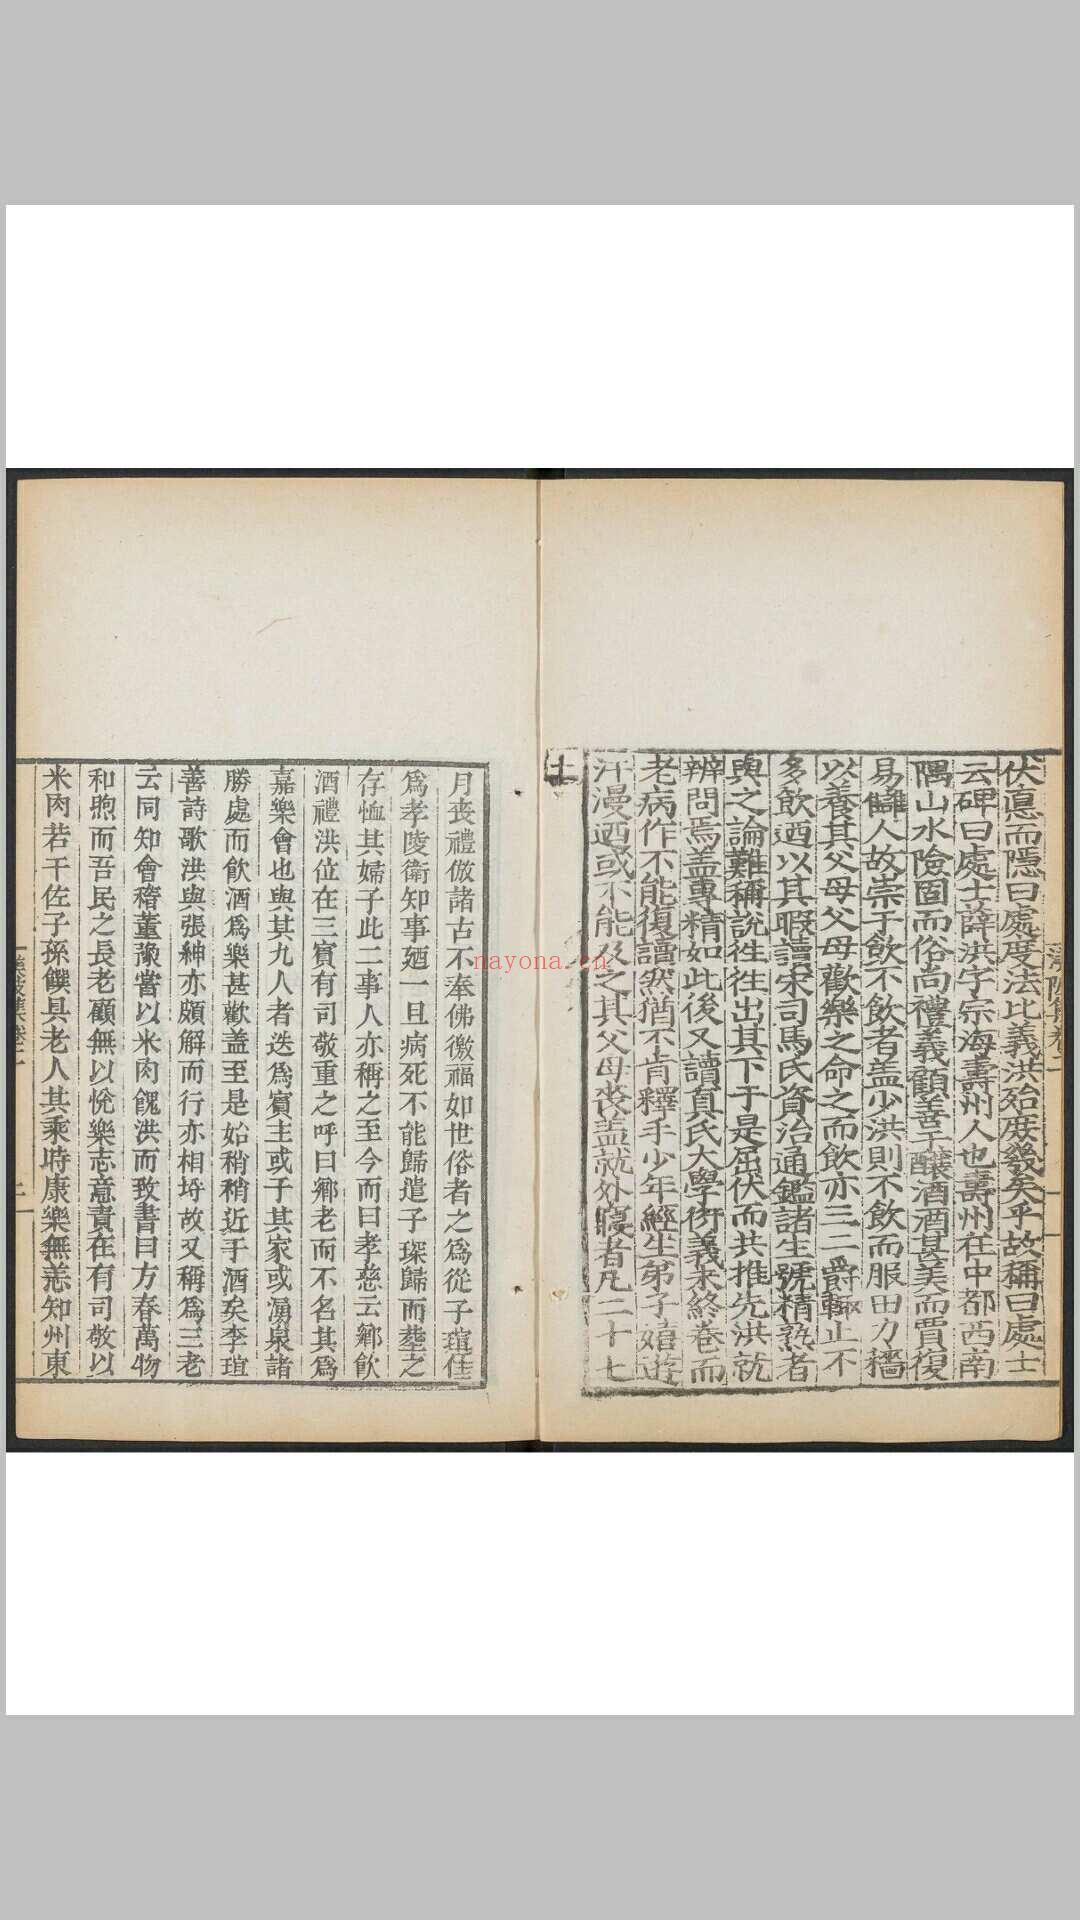 伏悳而隱曰處度法比義洪殆庶幾矣乎故稱曰處士
云碑曰處士薛洪字宗海壽州人也壽州在中都西南
隅山水險固而俗尚禮義顧善工釀酒酒甚美而賈復
易讎人故崇于飲不飲者盖少洪則不飲而服田力穡
以養其父母父母歡樂之命之而飲亦三二爵輒止不
多飲迺以其暇讀宋司馬氏資治通鑑諸生號精熟者
與之論難稱說徃徃出其下于是屈伏而共推先洪就
辨問焉盖專精如此後又讀真氏大學衍義未終卷而
老病作不能復讀然猶不肯釋手少年經生弟子嬉遊
汗漫迺或不能及之其父母喪盖就外寢者凡二十七
月喪禮倣諸古不奉佛徼福如世俗者之爲從子瑄佳
爲孝陵衛知事廼一旦病死不能歸遣子琛歸而塟之
存恤其婦子此二事人亦稱之至今而曰孝慈云鄉飲
酒禮洪位在三賓有司敬重之呼曰鄉老而不名其爲
嘉樂會也與其九人者迭爲賓主或于其家或湧泉諸
勝處而飲酒爲樂甚歡盖至是始稍稍近于酒矣李瑄
善詩歌洪與張紳亦頗解而行亦相埒故又稱爲三老
云同知會稽董豫嘗以米肉餽洪而致書曰方春萬物
和煦而吾民之長老顧無以悅樂志意責在有司敬以
米肉若干佐子孫饌具老人其乘時康樂無恙知州東